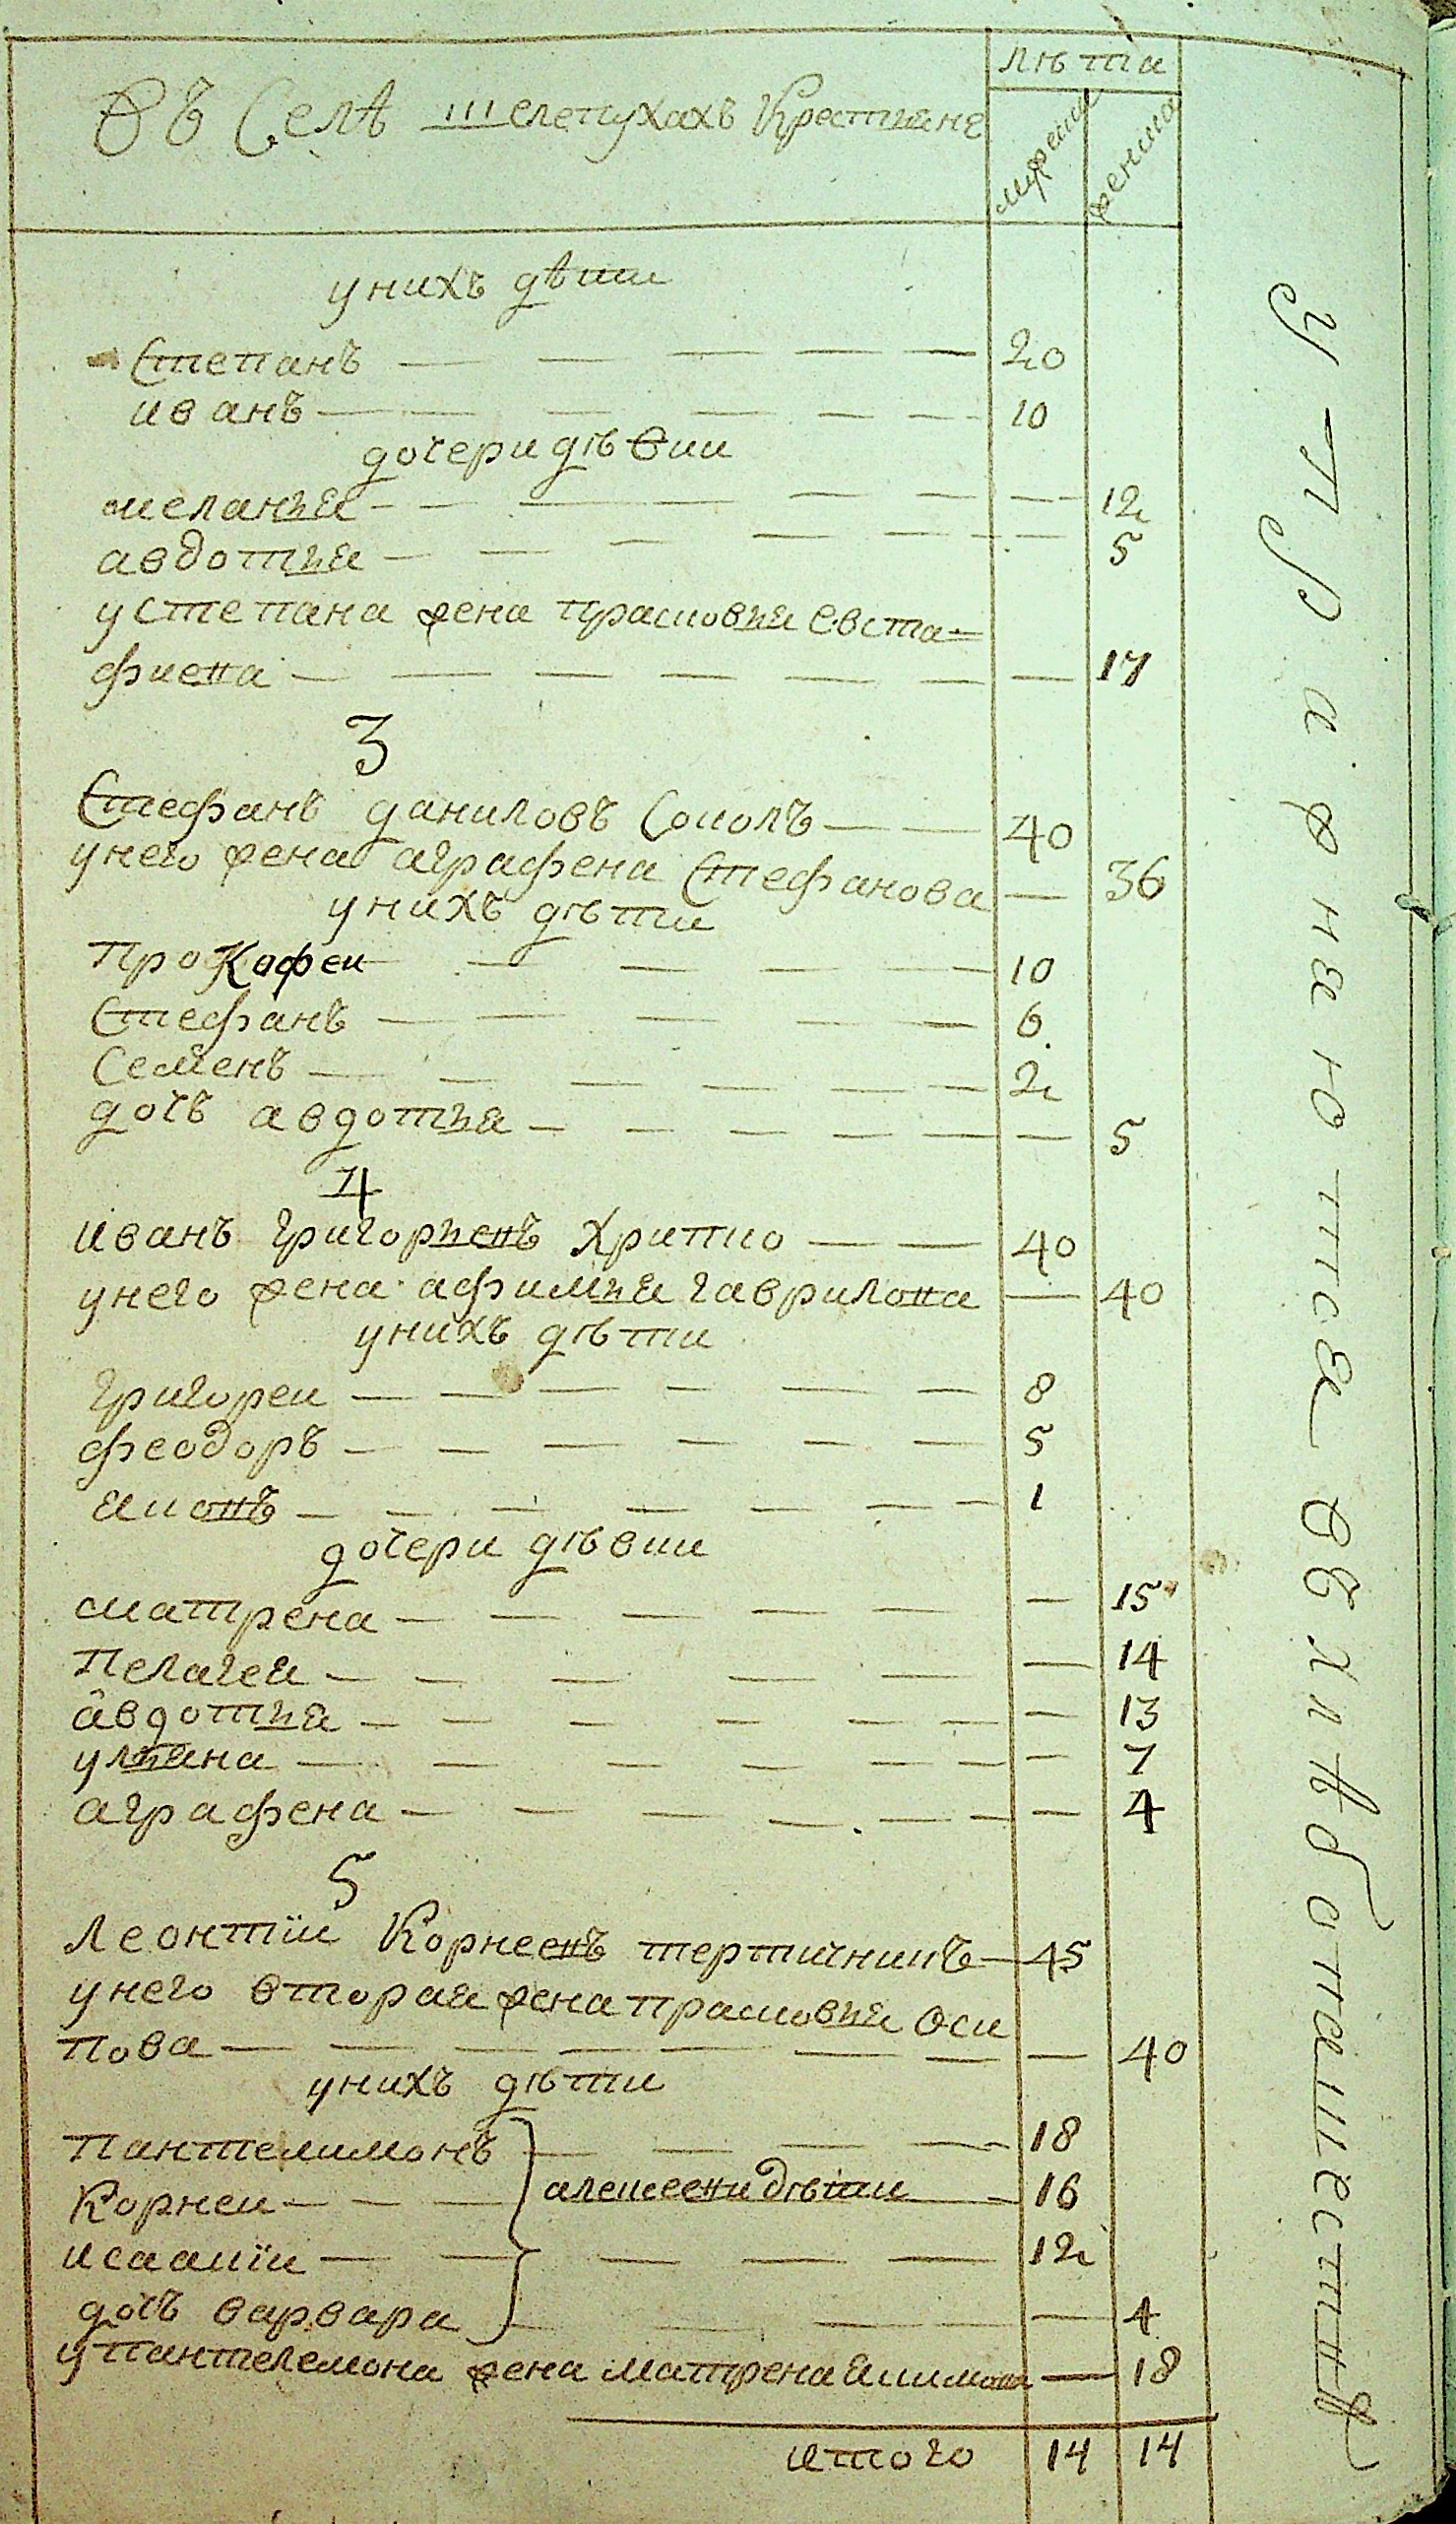 Лѣта
Въ Селѣ Шелепухахъ Крестияне
мужеска
женска
у нихъ дѣти
Степанъ — — — — — 20
иванъ — — — — — — 10
дочери дѣвки
меланья — — — — — — — 12
авдотья — — — — — — — 5
у степана жена прасковья Евста=
фиева — — — — — — — 17
3
Стефанъ даниловъ Соколъ — — 40
у него жена аграфена Стефанова — 36
у нихъ дѣти
Прокофеи — — — — 10
Стефанъ — — — — — 6
Семенъ — — — — — — 2
дочь авдотья — — — — — — 5
4
иванъ григорьевъ Хрипко — — 40
у него жена афимья гаврилова — 40
у нихъ дѣти
григореи — — — — — — 8
феодоръ — — — — — — 5
яковъ — — — — — — — 1
дочери дѣвки
матрена — — — — — — 15
Пелагея — — — — — — 14
авдотья — — — — — — — 13
ульяна — — — — — — — 7
аграфена — — — — — — — 4
5
Леонтїи Корнеевъ тертичникъ — 45
у него вторая жена прасковья Оси
пова — — — — — — — — 40
у нихъ дѣти
пантелимонъ — — — — 18
Корнеи — — — алексеевы дѣти — 16
исаакїи — — — — — 12
дочь варвара — — — — 4
у пантелемона жена матрена якимова — 18
итого 14 14
упражняются въ хлѣбопашествѣ